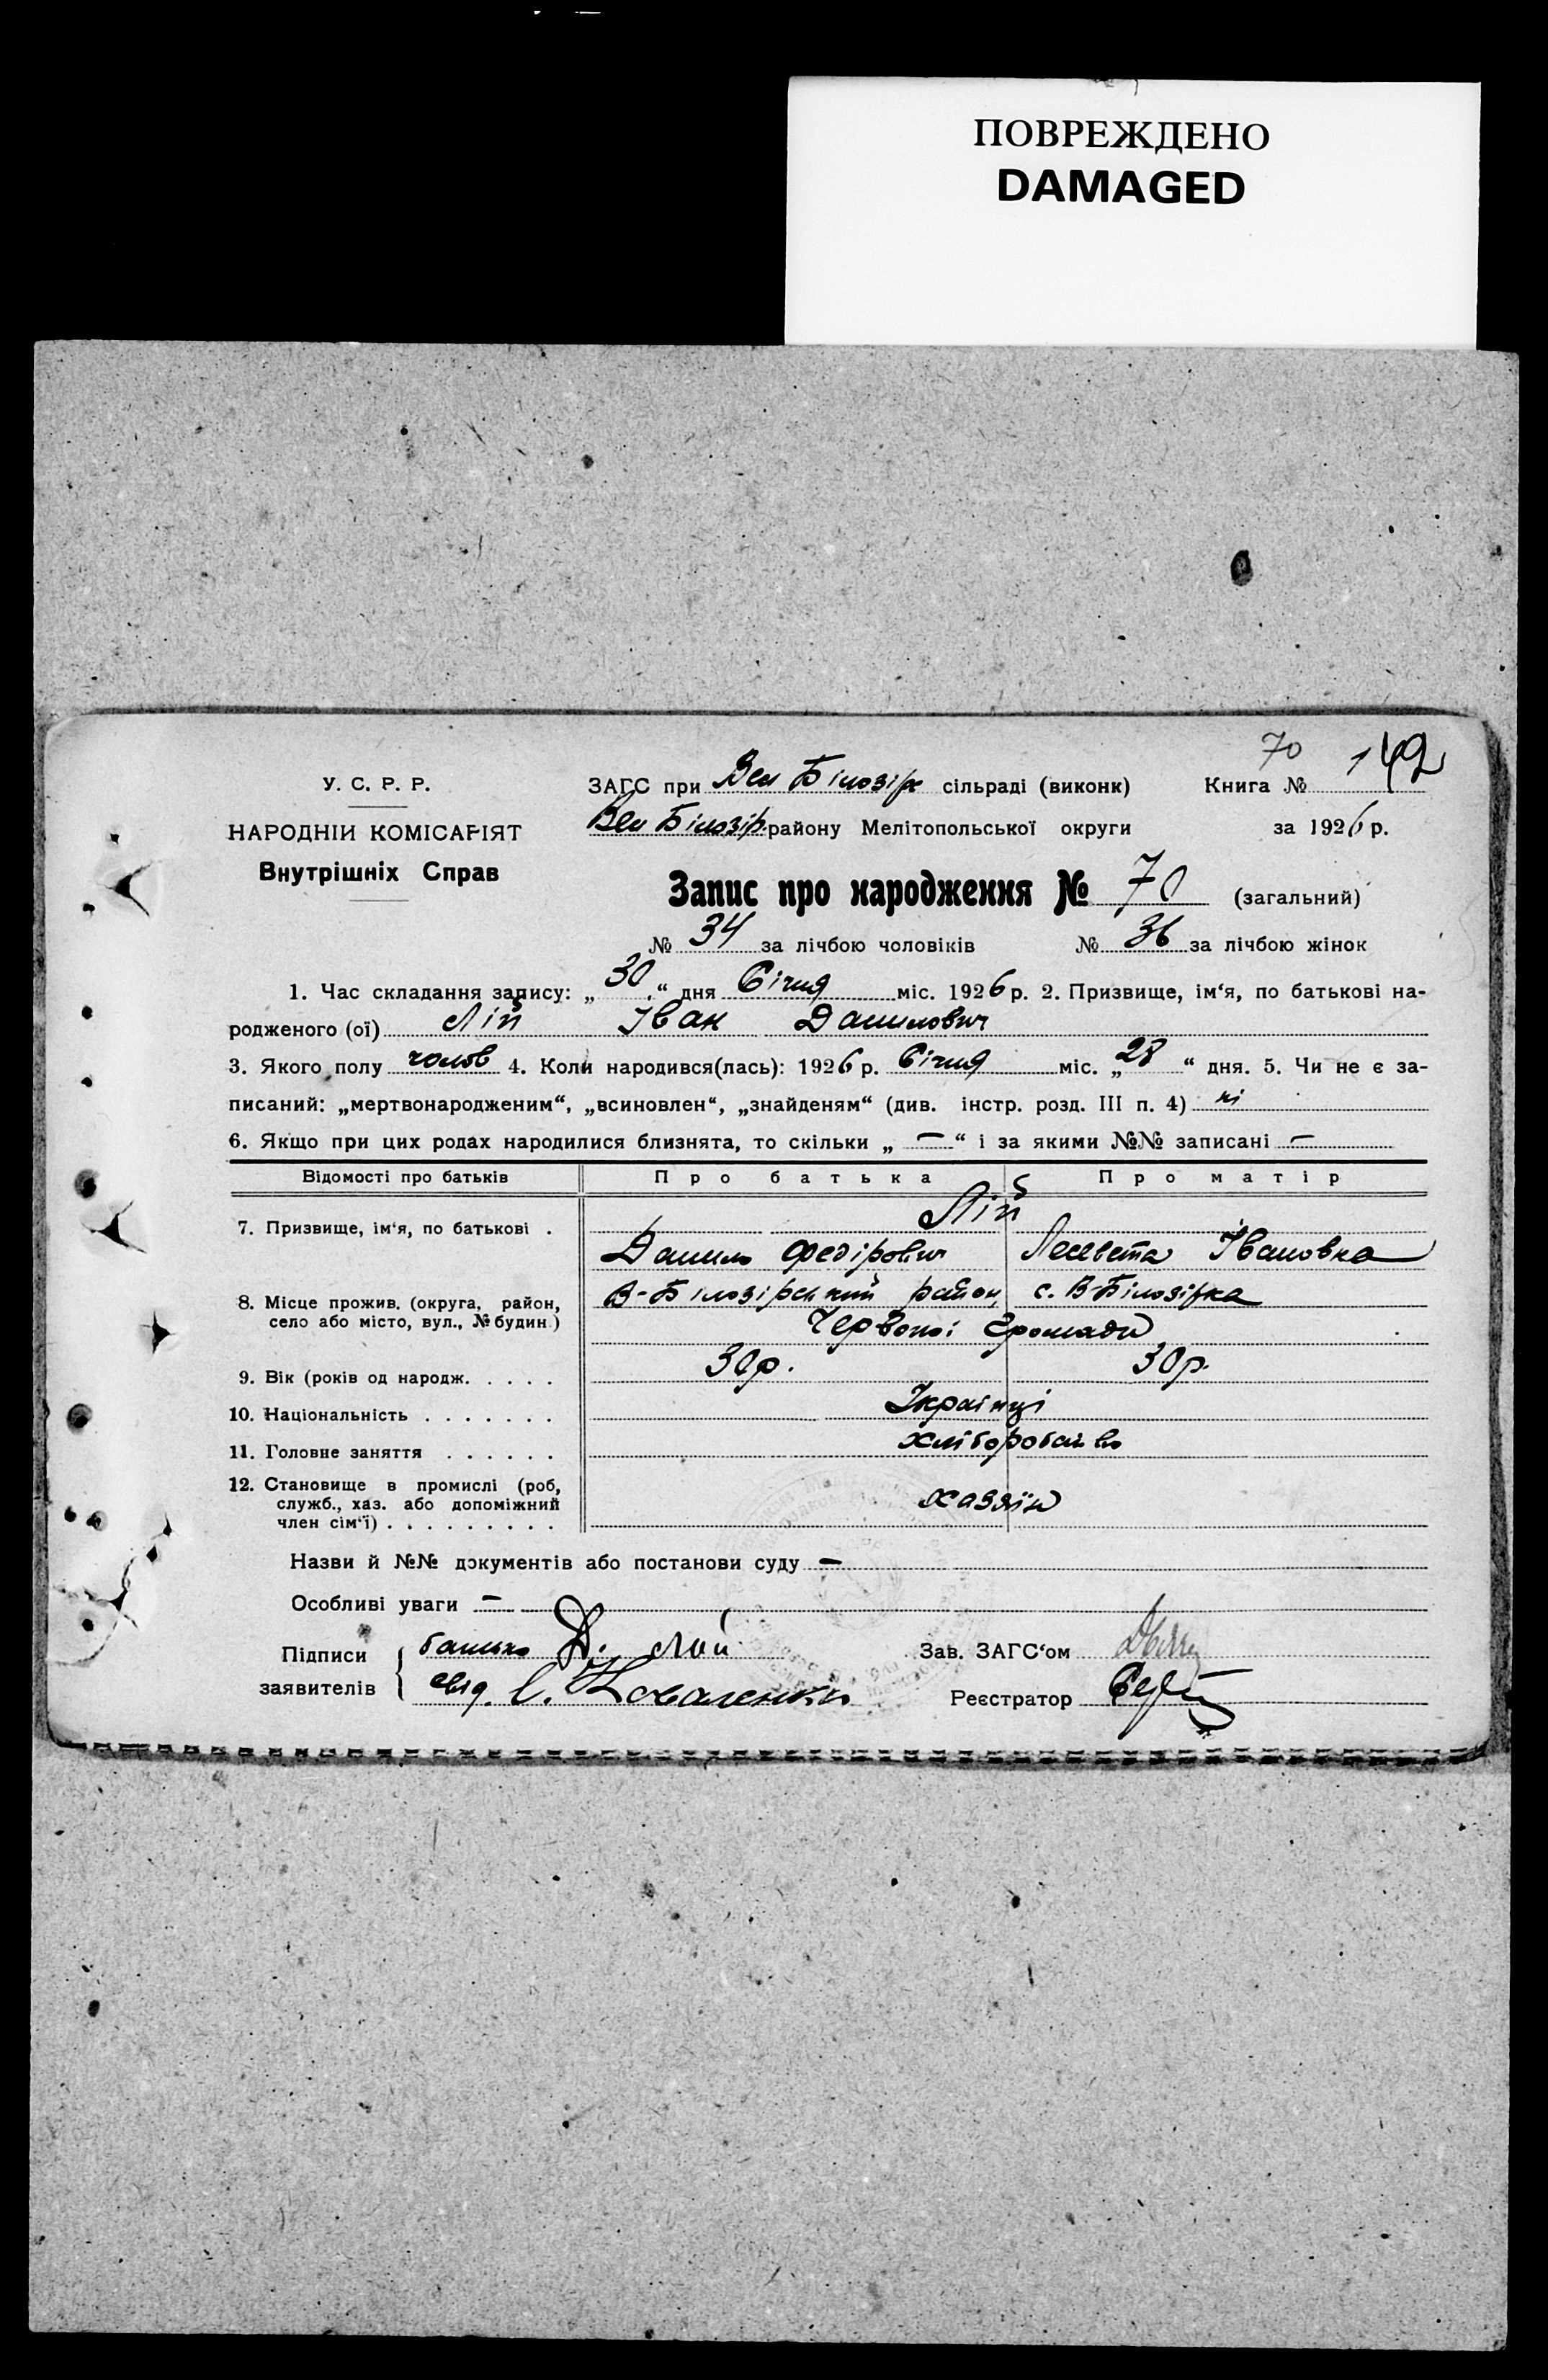 ПОВРЕЖДЕНО
DAMAGED
70 142
У. С. Р. Р. ЗАГС при Вел Білозір сільраді (виконк) Книга №
НАРОДНІЙ КОМІСАРІЯТ Вел Білозір. району Мелітопольської округи за 1926 р.
Внутрішніх Справ
Запис про народження № 70 (загальний)
№ 34 за лічбою чоловіків № 36 за лічбою жінок
1. Час складання запису: „30“ дня Січня міс. 1926 р. 2. Призвище, ім‘я, по батькові на-
родженого (ої) Лій Іван Данилович
3. Якого полу чолов 4. Коли народився(лась): 1926 р. Січня міс. „28“ дня. 5. Чи не є за-
писаний: „мертвонародженим“, „всиновлен“, „знайденям“ (див. інстр. розд. III п. 4) ні
6. Якщо при цих родах народилися близнята, то скільки „—“ і за якими №№ записані —
Відомості про батьків Про батька Про матір
7. Призвище, ім‘я, по батькові . Лій
Данило Федірович Лесевета Івановна
8. Місце прожив. (округа, район, В-Білозірський район, с. В-Білозірка
село або місто, вул., № будин.) Червоної Громади
9. Вік (років од народж. . . . . 30р. 30р.
10. Національність . . . . . . . Українці
11. Головне заняття . . . . . . хліборобство
12. Становище в промислі (роб,
служб., хаз. або допоміжний хазяїн
член сім‘ї) . . . . . . . . .
Назви й №№ документів або постанови суду —
Особливі уваги —
Підписи батько Д. Лій Зав. ЗАГС‘ом
заявителів свід. С. Коваленко Реєстратор